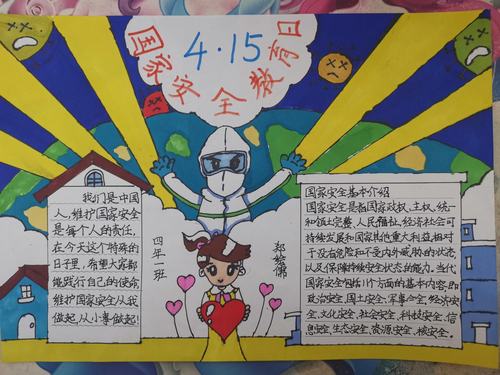 4.15
国家安全教育日
我们是中国
人,维护国家安全
是每个人的责任,
在今天这个特殊的
日子里,希望大家都
能践行自己的使命
维护国家安全从我
做起,从小事做起!
四年一班
国家安全基本介绍
国家安全是指国家政权、主权、统一
和领土完整、人民福祉、经济社会可
持续发展和国家其他重大利益相对
于没有危险和不受内外威胁的状态,
以及保障持续安全状态的能力。当代
国家安全包括11个方面的基本内容,即
政治安全、国土安全、军事安全、经济安
全、文化安全、社会安全、科技安全、信
息安全、生态安全、资源安全、核安全。